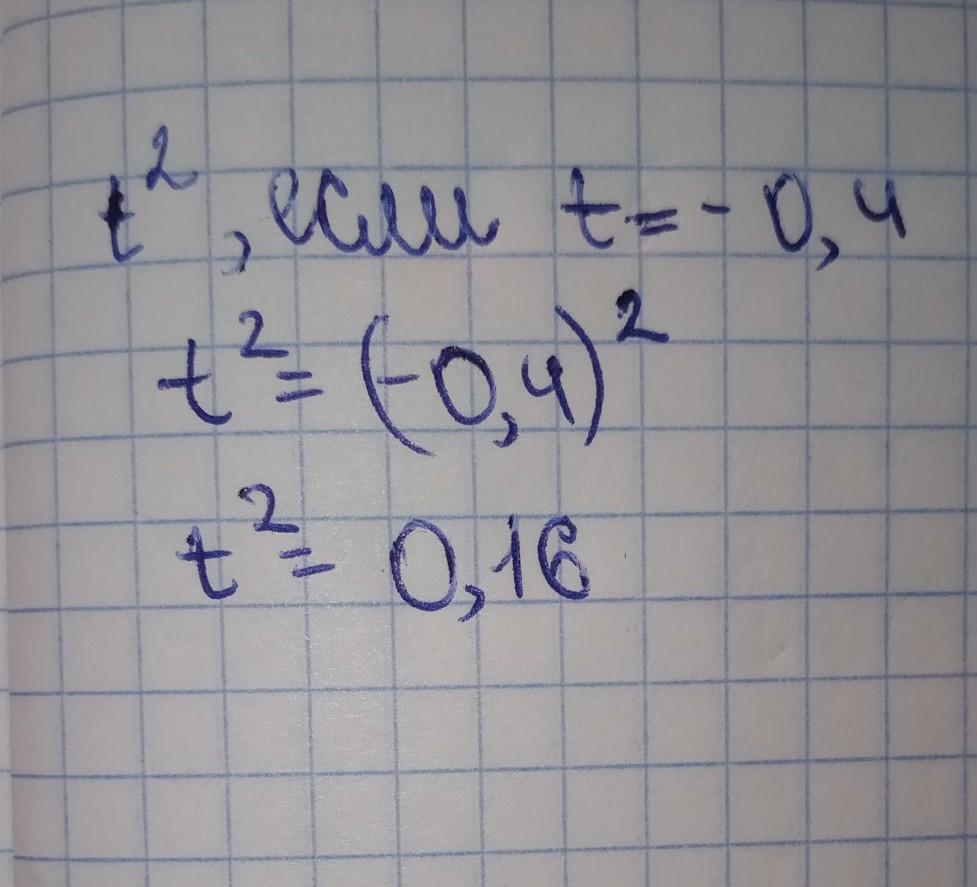 t², если t = - 0,4
t² = (-0,4)²
t² = 0,16